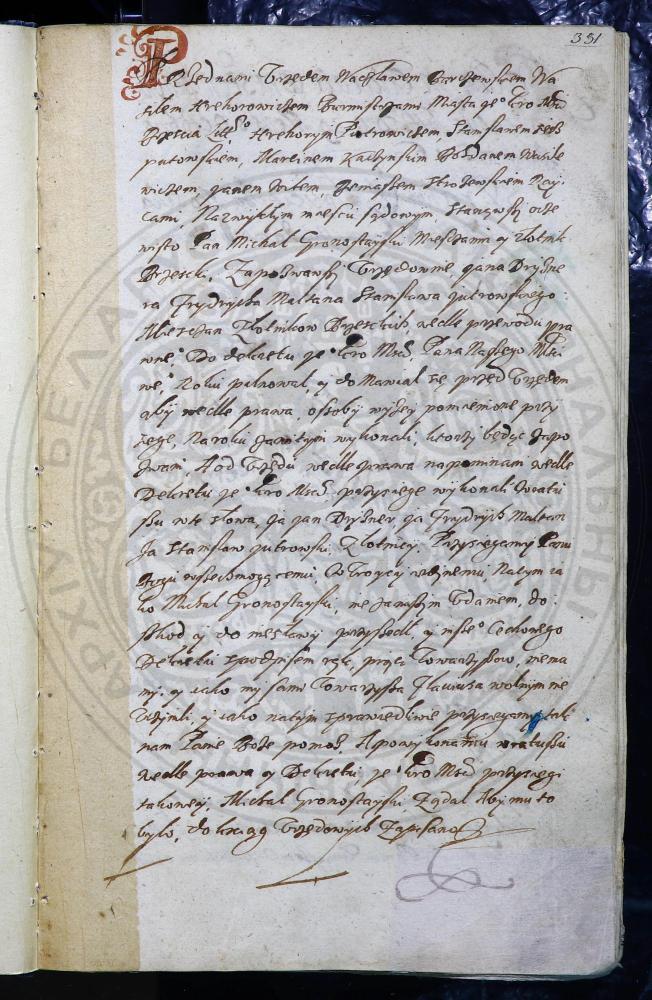 331
Przed nami Urzędem Wacławem Burczewskiem Wa
silem Hrehorowiczem Burmistrzami Miasta Je° Kro Mści
Brześcia Hrehorym Piotrowiczem, Stanisławem
putowskiem, Marcinem Bohdanem Wasile
wiczem, Janem Ray
cami, Na zwykłym miescu sądowym, Stanąwszy ocze
wisto Pan Michał Gronostayski Mieszczanin y złotnik
Brzeski, Zapozwawszy Urzędownie, Jana Dryżne
ra Frydrycha Maltana Stanisława Jutrowskiego
Miesczan Złotnikow Brzeskich wedle przewodu pra
wne°, Do dekretu Je° Kro Mści, Pana Naszego Miłści
we°, Roku pilnował, y domawiał się przed Urzędem
aby wedle prawa, osoby wyżey pomienione przy
sięgę, Na roku zawitym wykonali, ktorzy będąc zapo
zwani, A od Urzędu wedle prawa napominani wedle
Dekretu Je° Kro Mści przysięgę wykonali w ratu
szu w te słowa, Ja Jan Dryżner, Ja Frydrych Maltan
Ja Stanisław Jutrowski, Złotnicy, Przysięgamy Panu
Bogu wszechmogącemu, w Troycy iedynemu, Na tym ia
ko Michał Gronostayski, nie za naszym Udaniem, do
szkod y do niesławy przyszedł, y insze° Cechowego
Dekretu z podpisem rąk, pięci Towarzyszow, niema
my, y iako my sami Towarzysza wolnym nie
Uczynili, y iako na tym sprawiedliwie przysięgamy, tak
nam Panie Boże pomoż, A po wykonaniu w ratuszu
wedle prawa y Dekretu, Je° Kro Mści przysięgi
takowey, Michał Gronostayski Żądał Aby mu to
było, do ksiąg Urzędowych Zapisano